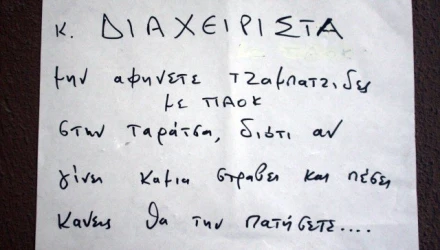 κ. ΔΙΑΧΕΙΡΙΣΤΑ
μην αφηνετε τζαμπατζιδες
με ΠΑΟΚ
στην ταράτσα, διότι αν
γίνει καμια στραβει και πέσει
κανεις θα την πατήσετε....